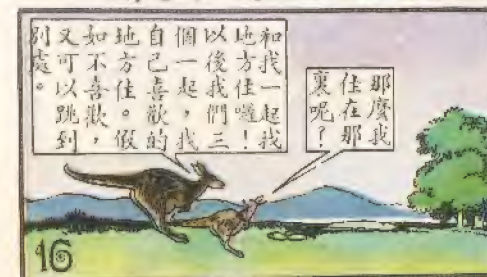 那麼我
住在那
裏呢?
和我一起找
地方住囉!
以後我們三
個一起,找
自己喜歡的
地方住。假
如不喜歡,
又可以跳到
別處。
16